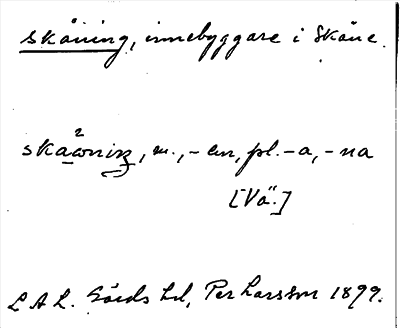 skåning, innebyggare i Skåne.
skaͦwniŋ, m., -en, pl. -a, -na
[Vä.]
L A L. Gärds hd, Per Larsson 1899.